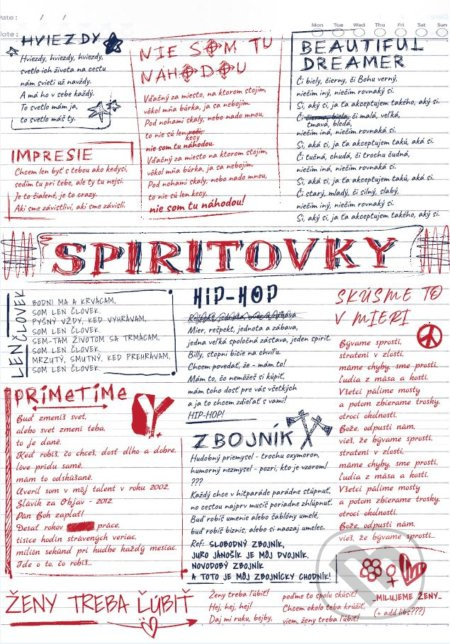 Date: / /
Date:
Mon Tue Wed Thu Fri Sat Sun
HVIEZDY
Hviezdy, hviezdy, hviezdy,
svetlo ich života na cestu
nám svieti už navždy.
A má ho v sebe každý.
To svetlo mám ja,
to svetlo máš ty.
NIE SOM TU
NAHODOU
Vďačný za miesto, na ktorom stojím,
vôkol mňa búrka, ja sa nebojím.
Pod nohami skaly, nebo nado mnou,
to nie sú len
kecy
nie som tu náhodou!
Vďačný za miesto, na ktorom stojím,
vôkol mňa búrka, ja sa nebojím.
Pod nohami skaly, nebo nado mnou,
to nie sú len kecy,
nie som tu náhodou!
BEAUTIFUL
DREAMER
Či biely, čierny, či Bohu verný,
niečím iný, niečím rovnaký si.
Si, aký si, ja ťa akceptujem takého, aký si.
Či čierna, biela, či malá, veľká,
tmavá, bledá,
niečím iná, niečím rovnaká si.
Si, aká si, ja ťa akceptujem takú, aká si.
Či tučná, chudá, či trochu čudná,
niečím iná, niečím rovnaká si.
Si, aká si, ja ťa akceptujem takú, aká si.
Či starý, mladý, či silný, slabý,
niečím iný, niečím rovnaký si.
Si, aký si, ja ťa akceptujem takého, aký si.
IMPRESIE
Chcem len byť s tebou ako kedysi,
sedím tu pri tebe, ale ty tu nejsi.
Je to šialené, je to crazy.
Aki sme závistliví, aki sme závislí.
SPIRITOVKY
LEN ČLOVEK
BODNI MA A KRVÁCAM,
SOM LEN ČLOVEK.
PYŠNÝ VŽDY, KEĎ VYHRÁVAM,
SOM LEN ČLOVEK.
SEM-TAM ŽIVOTOM SA TRMÁCAM,
SOM LEN ČLOVEK.
MRZUTÝ, SMUTNÝ, KEĎ PREHRÁVAM,
SOM LEN ČLOVEK.
HIP-HOP
Mier, rešpekt, jednota a zábava,
jedna veľká spoločná zástava, jeden spirit.
Billy, stopni bicie na chvíľu.
Chcem povedať, že - mám to!
Mám to, čo nemôžeš si kúpiť,
mám toho dosť pre vás všetkých
a ja to chcem zdieľať s vami!
HIP-HOP!
SKÚSME TO
V MIERI
Bývame sprostí,
stratení v zlosti,
máme chyby, sme prostí.
Ľudia z mäsa a kostí.
Všetci pálime mosty
a potom zbierame trosky,
otroci okolností.
Bože, odpusti nám,
vieš, že bývame sprostí,
stratení v zlosti,
máme chyby, sme prostí.
Ľudia z mäsa a kostí.
Všetci pálime mosty
a potom zbierame trosky,
otroci okolností.
Bože, odpusti nám,
vieš, že bývame sprostí.
PRIMETIME
Buď zmeníš svet,
alebo svet zmení teba,
to je dané.
Keď robíš, čo chceš, dosť dlho a dobre,
love prídu samé,
mám to odskúšané.
Otvoril som v mojj talent v roku 2002,
Slávik za Objav - 2012
Pán Boh zaplať!
Desať rokov práce,
tisíce hodín strávených veriac,
milión sekúnd pri hudbe každý mesiac.
Ide o to, čo robíš...
ZBOJNÍK
Hudobný priemysel - trochu oxymoron,
humorný nezmysel - pozri, kto je vzorom!
???
Každý chce v hitparáde parádne stúpnuť,
na cestou najprv musíš poriadne zhlúpnuť.
Buď robíš umenie alebo šablóny umele,
buď robíš biznis, alebo si naozaj umelec.
Ref: SLOBODNÝ ZBOJNÍK,
JURO JÁNOŠÍK JE MÔJ DVOJNÍK,
NOVODOBÝ ZBOJNÍK
A TOTO JE MÔJ ZBOJNÍCKY CHODNÍK!
ŽENY TREBA ĽÚBIŤ
Ženy treba ľúbiť!
Hej, hej, hej!
Daj mi ruku, bejby,
poďme to spolu skúsiť!
Chcem okolo teba krúžiť,
MILUJEME ŽENY..